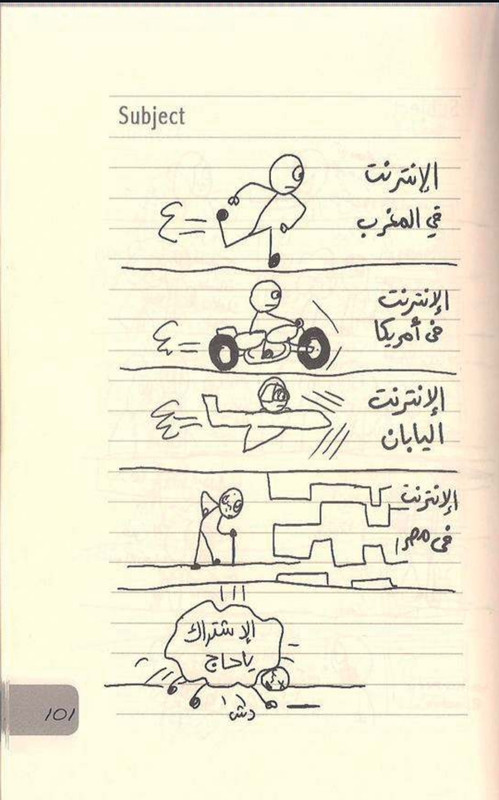 Subject
الإنترنت
في المغرب
الإنترنت
في أمريكا
الإنترنت
اليابان
الإنترنت
في مصر!
الإشتراك
ياحاج
دش!
101